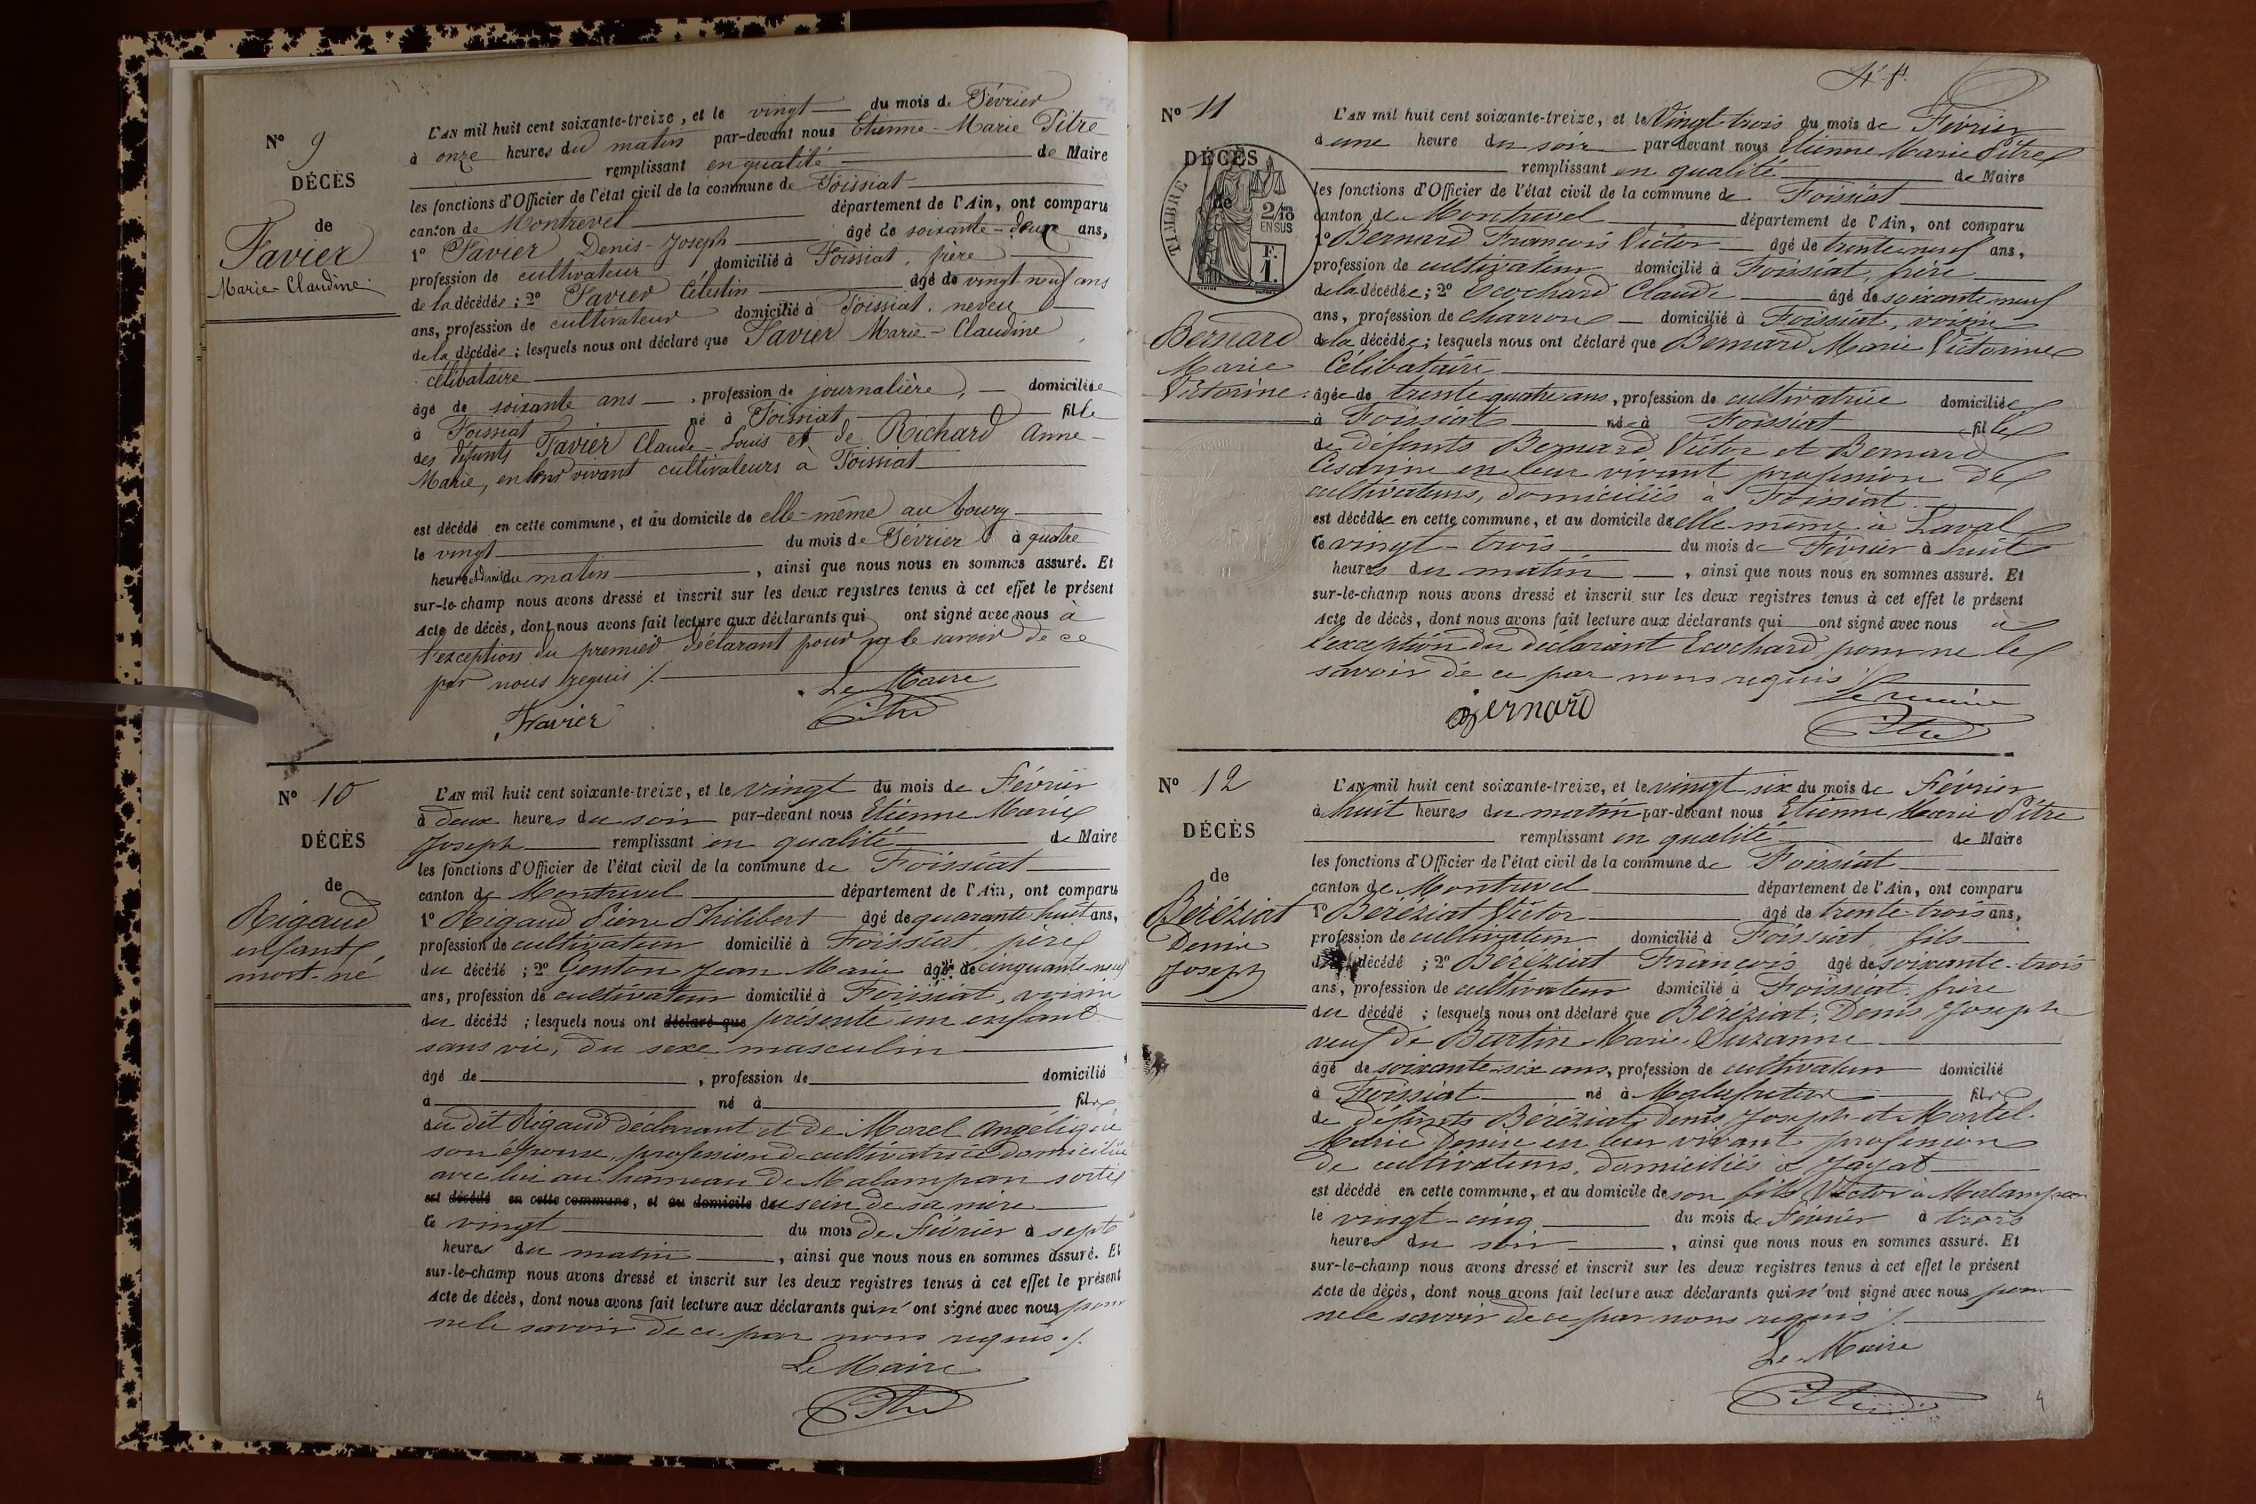 N° 9
DÉCÈS
de
Favier
Marie-Claudine
L'AN mil huit cent soixante-treize, et le vingt du mois de Février
à onze heures du matin par-devant nous Etienne-Marie Pitre
remplissant en qualité de Maire
les fonctions d'Officier de l'état civil de la commune de Foissiat
canton de Montrevel département de l'Ain, ont comparu
1° Favier Denis-Joseph âgé de soixante-deux ans,
profession de cultivateur domicilié à Foissiat, frère
de la décédée; 2° Favier Célestin âgé de vingt neuf ans
ans, profession de cultivateur domicilié à Foissiat, neveu
de la décédée; lesquels nous ont déclaré que Favier Marie-Claudine
célibataire
âgé de soixante ans, profession de journalière, domiciliée
à Foissiat né à Foissiat fille
des défunts Favier Claude-Louis et de Richard Anne-
Marie, en leur vivant cultivateurs à Foissiat
est décédé en cette commune, et au domicile de elle-même au bourg
le vingt du mois de Février à quatre
heures du matin, ainsi que nous nous en sommes assuré. Et
sur-le-champ nous avons dressé et inscrit sur les deux registres tenus à cet effet le présent
Acte de décès, dont nous avons fait lecture aux déclarants qui ont signé avec nous à
l'exception du premier déclarant pour ne le savoir de ce
par nous requis /.
Le Maire
Favier Pitre
N° 10
DÉCÈS
de
Rigaud
enfant
mort-né
L'AN mil huit cent soixante-treize, et le vingt du mois de Février
à deux heures du soir par-devant nous Etienne Marie
Joseph remplissant en qualité de Maire
les fonctions d'Officier de l'état civil de la commune de Foissiat
canton de Montrevel département de l'Ain, ont comparu
1° Rigaud Pierre Philibert âgé de quarante huit ans,
profession de cultivateur domicilié à Foissiat, père
du décédé; 2° Genton Jean Marie âgé de cinquante-neuf
ans, profession de cultivateur domicilié à Foissiat, voisin
du décédé; lesquels nous ont déclaré que présenté un enfant
sans vie, du sexe masculin
âgé de , profession de domicilié
à né à fils
du dit Rigaud déclarant et de Morel Angélique
son épouse, profession de cultivatrice domiciliée
avec lui au hameau de Malampan sortie
est décédé en cette commune, et au domicile du sein de sa mère
le vingt du mois de Février à sept
heures du matin, ainsi que nous nous en sommes assuré. Et
sur-le-champ nous avons dressé et inscrit sur les deux registres tenus à cet effet le présent
Acte de décès, dont nous avons fait lecture aux déclarants qui n'ont signé avec nous pour
ne le savoir de ce par nous requis ./.
Le Maire
Pitre
N° 11
DÉCÈS
de
TIMBRE
2/10 EN SUS
F. 1.
Bernard
Marie
Victorine
L'AN mil huit cent soixante-treize, et le Vingt-trois du mois de Février
à une heure du soir par-devant nous Etienne Marie Pitre
remplissant en qualité de Maire
les fonctions d'Officier de l'état civil de la commune de Foissiat
canton de Montrevel département de l'Ain, ont comparu
1° Bernard François Victor âgé de trente-neuf ans,
profession de cultivateur domicilié à Foissiat, frère
de la décédée; 2° Ecochard Claude âgé de soixante neuf
ans, profession de charron domicilié à Foissiat, voisin
de la décédée; lesquels nous ont déclaré que Bernard Marie Victorine
Célibataire
âgée de trente quatre ans, profession de cultivatrice domiciliée
à Foissiat née à Foissiat fille
de défunts Bernard Victor et Bernard
Césarine en leur vivant profession de
cultivateurs, domiciliés à Foissiat
est décédée en cette commune, et au domicile de elle-même à Laval
le vingt-trois du mois de Février à huit
heures du matin, ainsi que nous nous en sommes assuré. Et
sur-le-champ nous avons dressé et inscrit sur les deux registres tenus à cet effet le présent
Acte de décès, dont nous avons fait lecture aux déclarants qui ont signé avec nous à
l'exception du déclarant Ecochard pour ne le
savoir de ce par nous requis /.
Le maire
Bernard Pitre
N° 12
DÉCÈS
de
Béréziat
Denis
Joseph
L'AN mil huit cent soixante-treize, et le vingt six du mois de Février
à huit heures du matin par-devant nous Etienne Marie Pitre
remplissant en qualité de Maire
les fonctions d'Officier de l'état civil de la commune de Foissiat
canton de Montrevel département de l'Ain, ont comparu
1° Béréziat Victor âgé de trente-trois ans,
profession de cultivateur domicilié à Foissiat, fils
du décédé; 2° Béréziat François âgé de soixante-trois
ans, profession de cultivateur domicilié à Foissiat, frère
du décédé; lesquels nous ont déclaré que Béréziat, Denis Joseph
veuf de Burtin Marie-Suzanne
âgé de soixante-six ans, profession de cultivateur domicilié
à Foissiat né à Malafretaz fils
de défunts Béréziat, Denis Joseph et Martel
Marie Denise en leur vivant profession
de cultivateurs, domiciliés à Jayat
est décédé en cette commune, et au domicile de son fils Victor à Malampan
le vingt-cinq du mois de Février à trois
heures du soir, ainsi que nous nous en sommes assuré. Et
sur-le-champ nous avons dressé et inscrit sur les deux registres tenus à cet effet le présent
Acte de décès, dont nous avons fait lecture aux déclarants qui n'ont signé avec nous pour
ne le savoir de ce par nous requis /.
Le Maire
Pitre
4